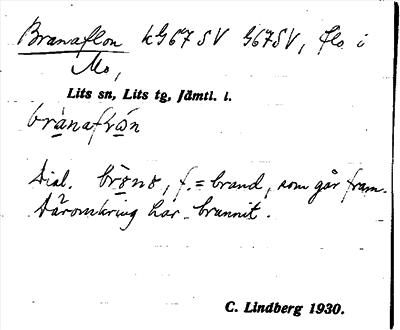 Branaflon kG67SV G67SV, flo i
Mo,
Lits sn, Lits tg, Jämtl. l.
brànafrán
Dial. brono, f. = brand, som går fram.
Däromkring har brunnit.
C. Lindberg 1930.